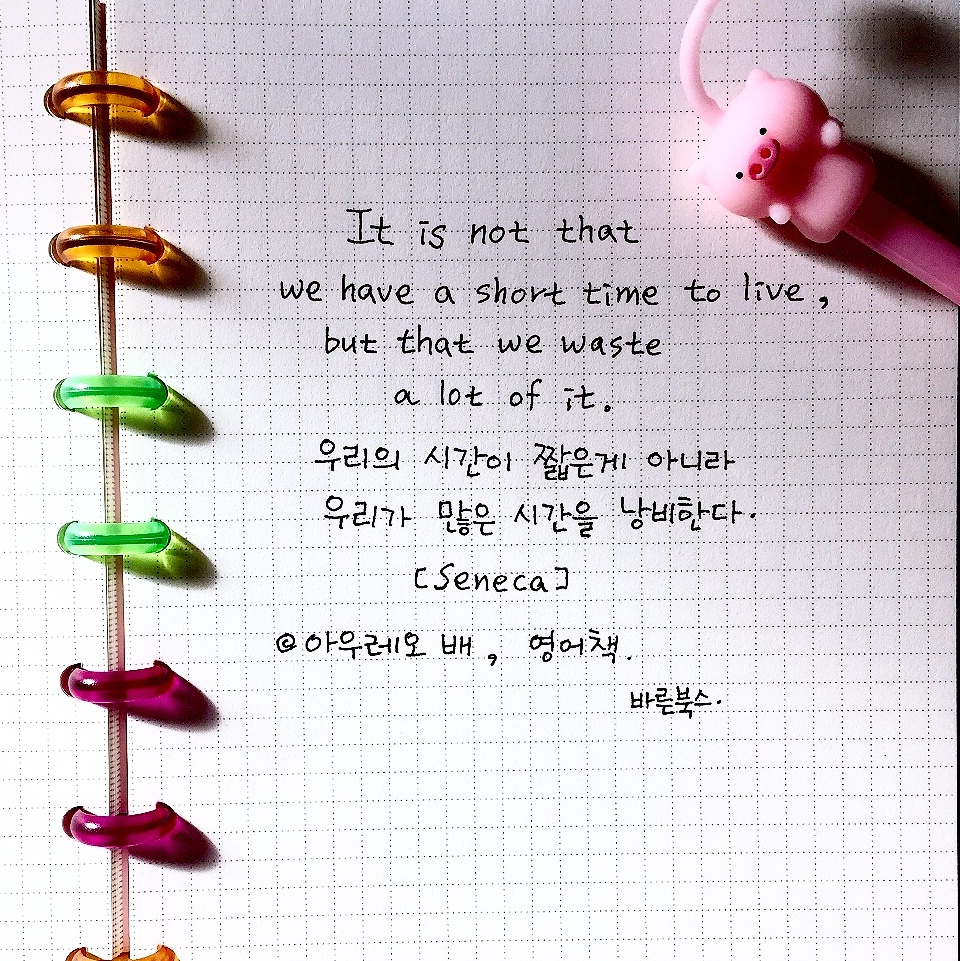 It is not that
we have a short time to live,
but that we waste
a lot of it.
우리의 시간이 짧은게 아니라
우리가 많은 시간을 낭비한다.
[Seneca]
© 아우레오 배, 영어책.
바른북스.